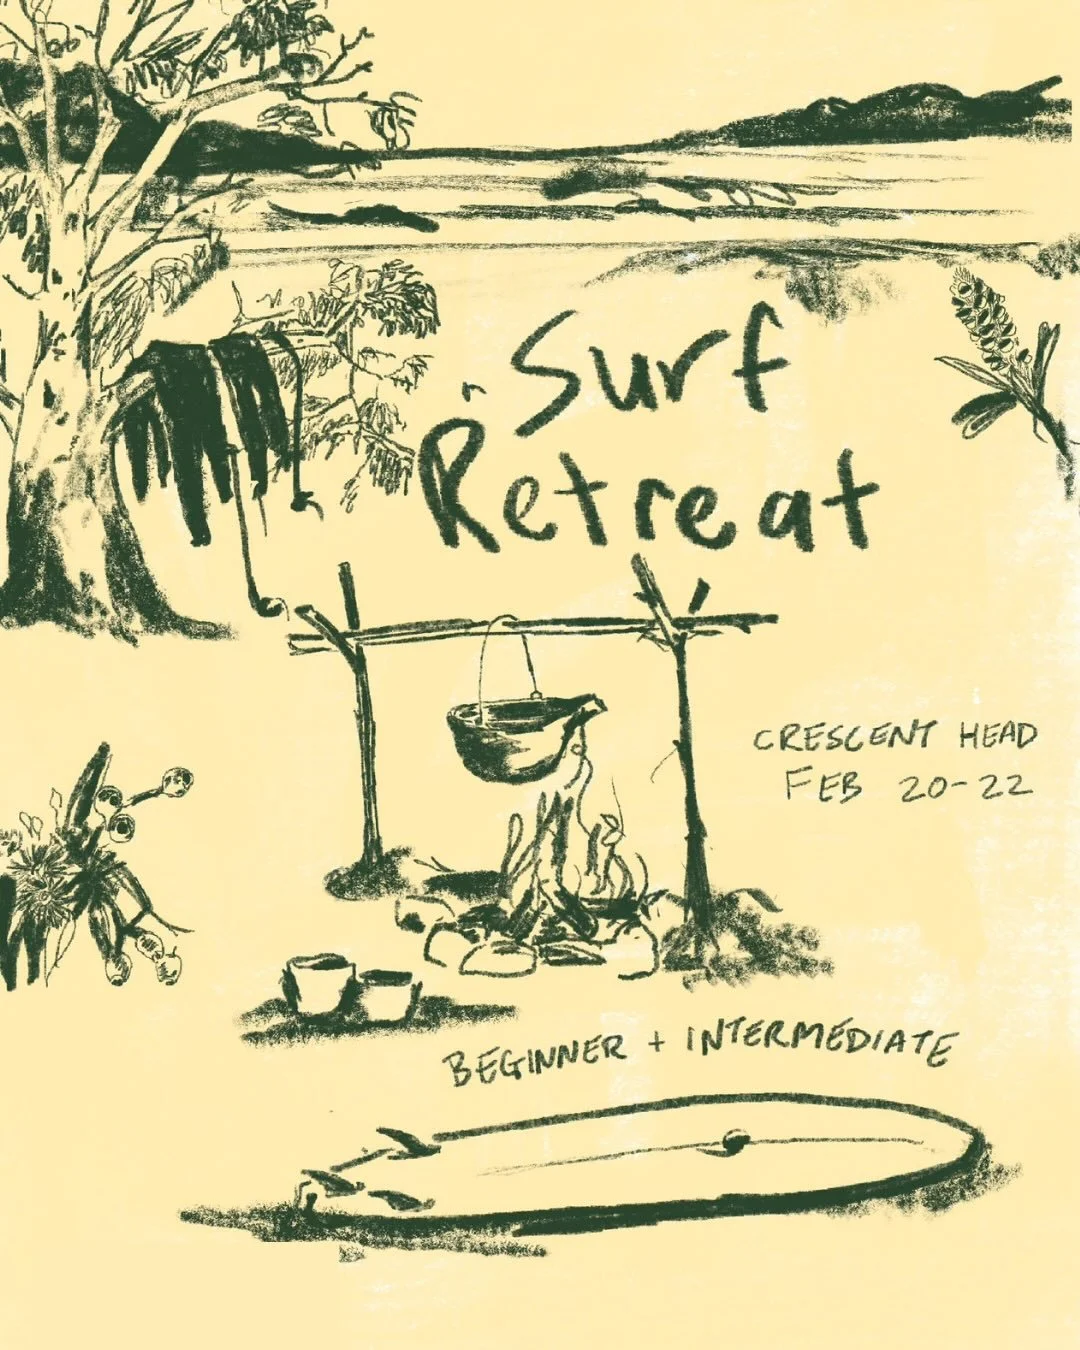 Surf
Retreat
CRESCENT HEAD
FEB 20-22
BEGINNER + INTERMEDIATE